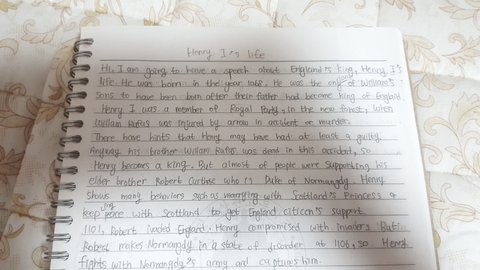 Henry I's life
Hi, I am going to have a speech about England's king, Henry I's
life. He was born in the year 1068. He was the only one of William's
sons to have been born after their father had become king of England
Henry I was a member of Royal Party, in the new forest, when
William Rufus was injured by arrow in accident or murder.
There have hints that Henry may have had at least a guilty.
Anyway his brother William Rufus was dead in this accident, so
Henry becomes a king. But almost of people were supporting his
elder brother Robert Curthose who is Duke of Normandy. Henry
Shows many behaviors such as marrying with Scotland's Princess &
keeping peace with Scottland to get England citizen's support
1101, Robert invaded England. Henry compromised with invaders. But
Robert makes Normandy in a state of disorder at 1106, so Henry
fights with Normandy's army and captures him.